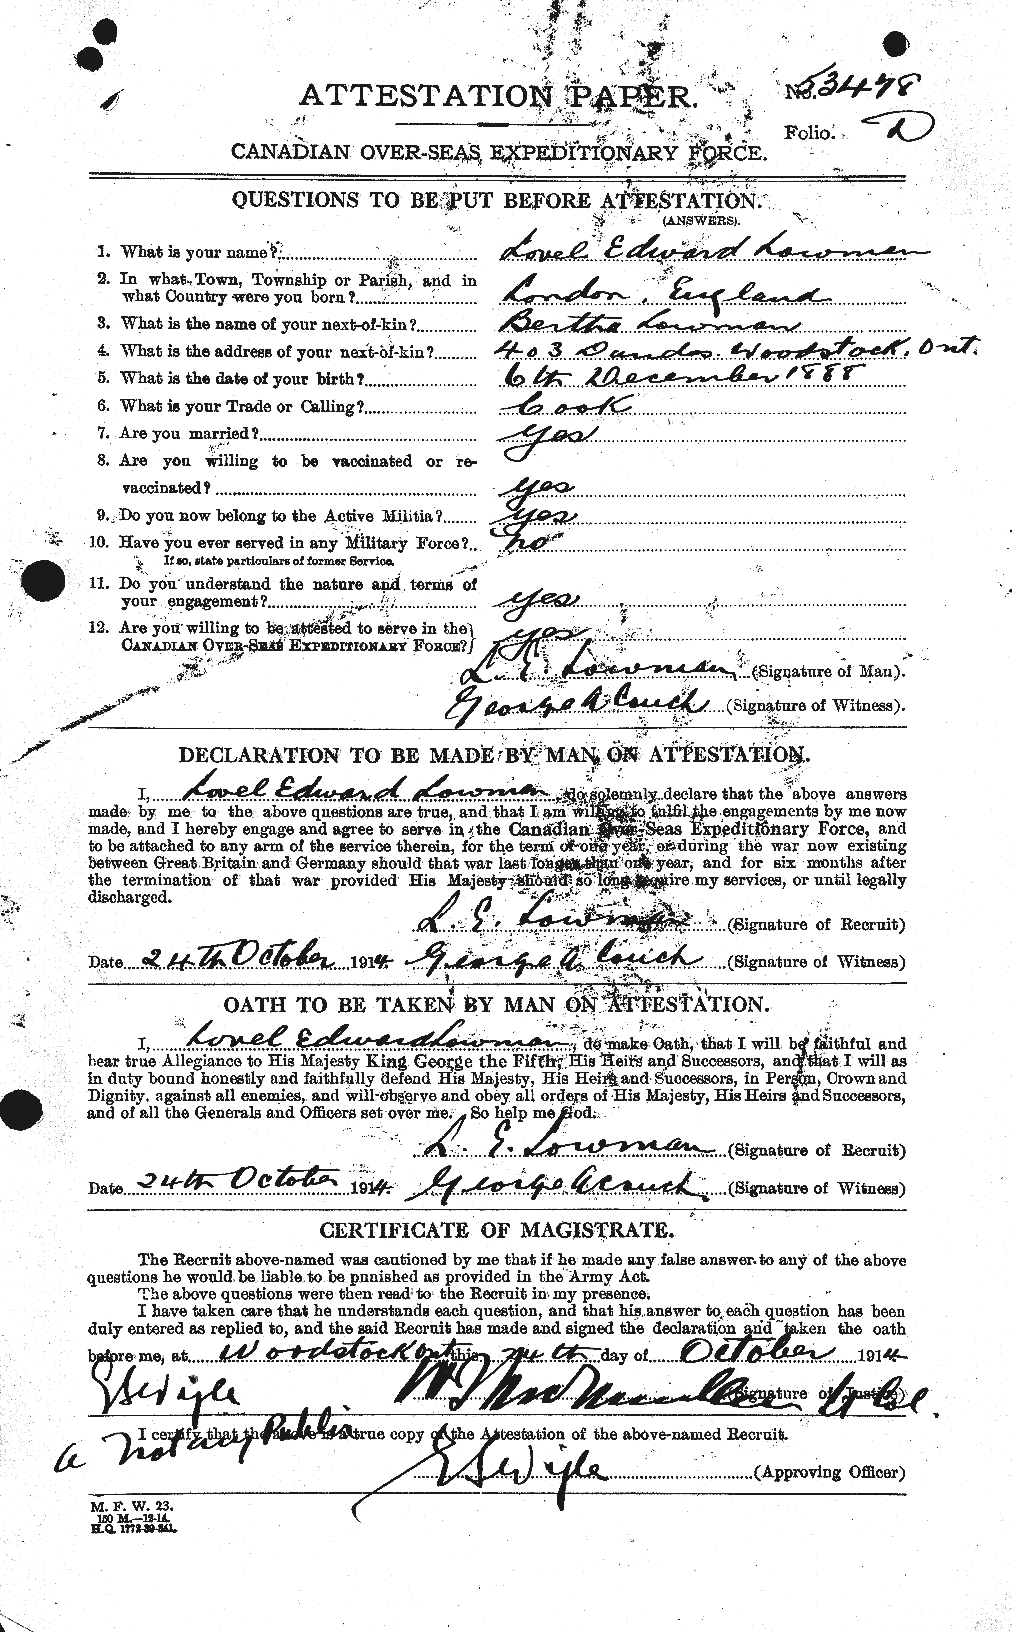 ATTESTATION PAPER.
No. 53478
Folio. D
CANADIAN OVER-SEAS EXPEDITIONARY FORCE.
QUESTIONS TO BE PUT BEFORE ATTESTATION.
(ANSWERS).
1. What is your name? Lovel Edward Lowman
2. In what Town, Township or Parish, and in
what Country were you born? London, England
3. What is the name of your next-of-kin? Bertha Lowman
4. What is the address of your next-of-kin? 403 Dundas. Woodstock, Ont.
5. What is the date of your birth? 6th December 1888
6. What is your Trade or Calling? Cook
7. Are you married? Yes
8. Are you willing to be vaccinated or re-
vaccinated? yes
9. Do you now belong to the Active Militia? yes
10. Have you ever served in any Military Force? no
If so, state particulars of former Service.
11. Do you understand the nature and terms of
your engagement? yes
12. Are you willing to be attested to serve in the
CANADIAN OVER-SEAS EXPEDITIONARY FORCE? yes
L. E. Lowman (Signature of Man).
George A Couch (Signature of Witness).
DECLARATION TO BE MADE BY MAN ON ATTESTATION.
I, Lovel Edward Lowman, do solemnly declare that the above answers
made by me to the above questions are true, and that I am willing to fulfil the engagements by me now
made, and I hereby engage and agree to serve in the Canadian Over-Seas Expeditionary Force, and
to be attached to any arm of the service therein, for the term of one year, or during the war now existing
between Great Britain and Germany should that war last longer than one year, and for six months after
the termination of that war provided His Majesty should so long require my services, or until legally
discharged.
L. E. Lowman (Signature of Recruit)
Date 24th October 1914. George A Couch (Signature of Witness)
OATH TO BE TAKEN BY MAN ON ATTESTATION.
I, Lovel Edward Lowman, do make Oath, that I will be faithful and
bear true Allegiance to His Majesty King George the Fifth, His Heirs and Successors, and that I will as
in duty bound honestly and faithfully defend His Majesty, His Heirs and Successors, in Person, Crown and
Dignity, against all enemies, and will observe and obey all orders of His Majesty, His Heirs and Successors,
and of all the Generals and Officers set over me. So help me God.
L. E. Lowman (Signature of Recruit)
Date 24th October 1914. George A Couch (Signature of Witness)
CERTIFICATE OF MAGISTRATE.
The Recruit above-named was cautioned by me that if he made any false answer to any of the above
questions he would be liable to be punished as provided in the Army Act.
The above questions were then read to the Recruit in my presence.
I have taken care that he understands each question, and that his answer to each question has been
duly entered as replied to, and the said Recruit has made and signed the declaration and taken the oath
before me, at Woodstock Ont this 24th day of October 1914
ES Wigle (Signature of Justice)
I certify that the above is a true copy of the Attestation of the above-named Recruit.
a Notary Public
ES Wigle (Approving Officer)
M. F. W. 23.
150 M.—12-14.
H.Q. 1772-39-241.